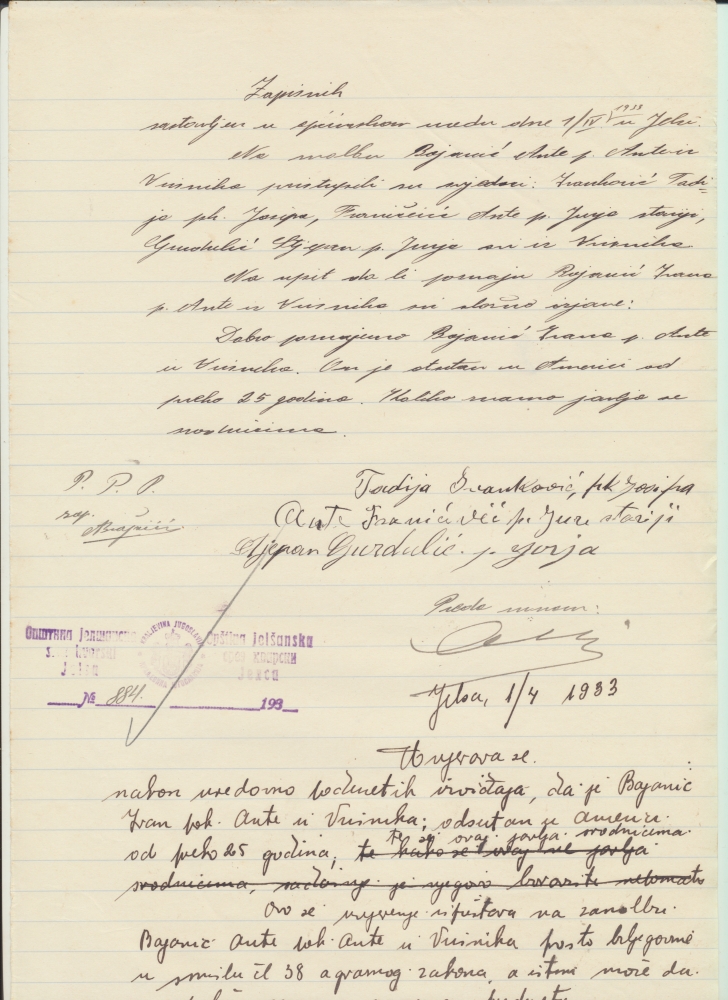 Zapisnik
sastavljen u općinskom uredu dne 1/IV 1933 u Jelsi.
Na molbu Bojanić Ante p. Ante iz
Vrisnika pristupili su svjedoci: Ivanković Tadi-
ja pk. Josipa, Franičević Ante p. Jurja stariji,
Gurdulić Stjepan p. Jurja svi iz Vrisnika
Na upit da li poznaju Bojanić Ivana
p. Ante iz Vrisnika svi složno izjave:
Dobro poznajemo Bojanić Ivana p. Ante
iz Vrisnika. On je odsutan u Americi od
preko 25 godina. se
rodnicima.
P. P. P.
zap.
Tadija Ivanković, pk Josipa
Ante Franičević p. Jure stariji
Stjepan Gurdulić p. Jurja
Preda mnom:
Општина Јелшанска
Јелса
KRALJEVINA JUGOSLAVIJA
Opština Jelšanska
№ 884. 193
Jelsa, 1/4 1933
Uvjerava se.
nakon uredovno izviđaja, da je Bojanić
Ivan pok. Ante iz Vrisnika, odsutan u Americi
od preko 25 godina, te se ovaj javlja srodnicima.
te kako se ovaj ne javlja
srodnicima, je njegovo
Ovo se uvjerenje na zamolbu
Bojanić Ante pok. Ante iz Vrisnika
u smislu čl 38 agrarnog zakona, a može da